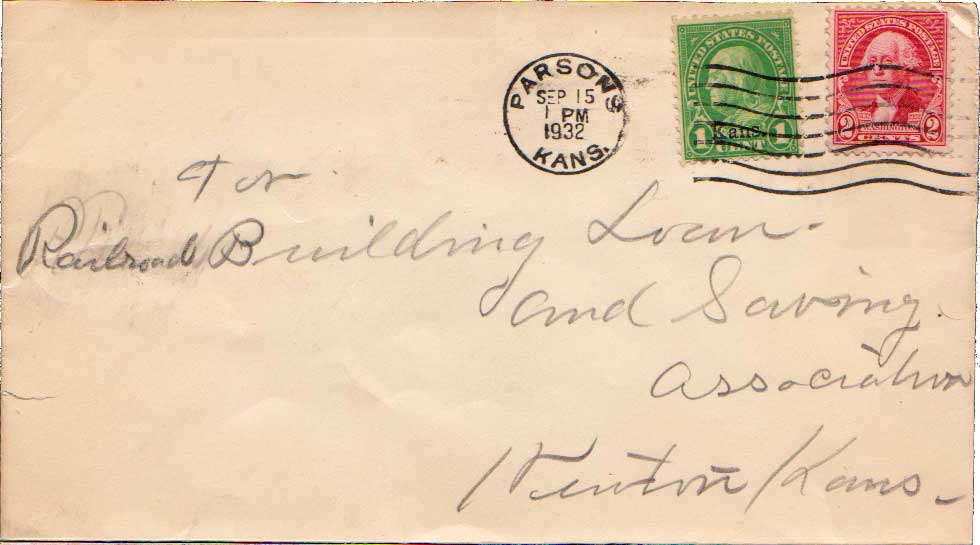 PARSONS
SEP 15
1 PM
1932
KANS.
UNITED STATES POSTAGE
1 Kans. 1
CENT
UNITED STATES POSTAGE
2 WASHINGTON 2
CENTS
For
Railroad Building Loan
and Saving
Association
Newton Kans